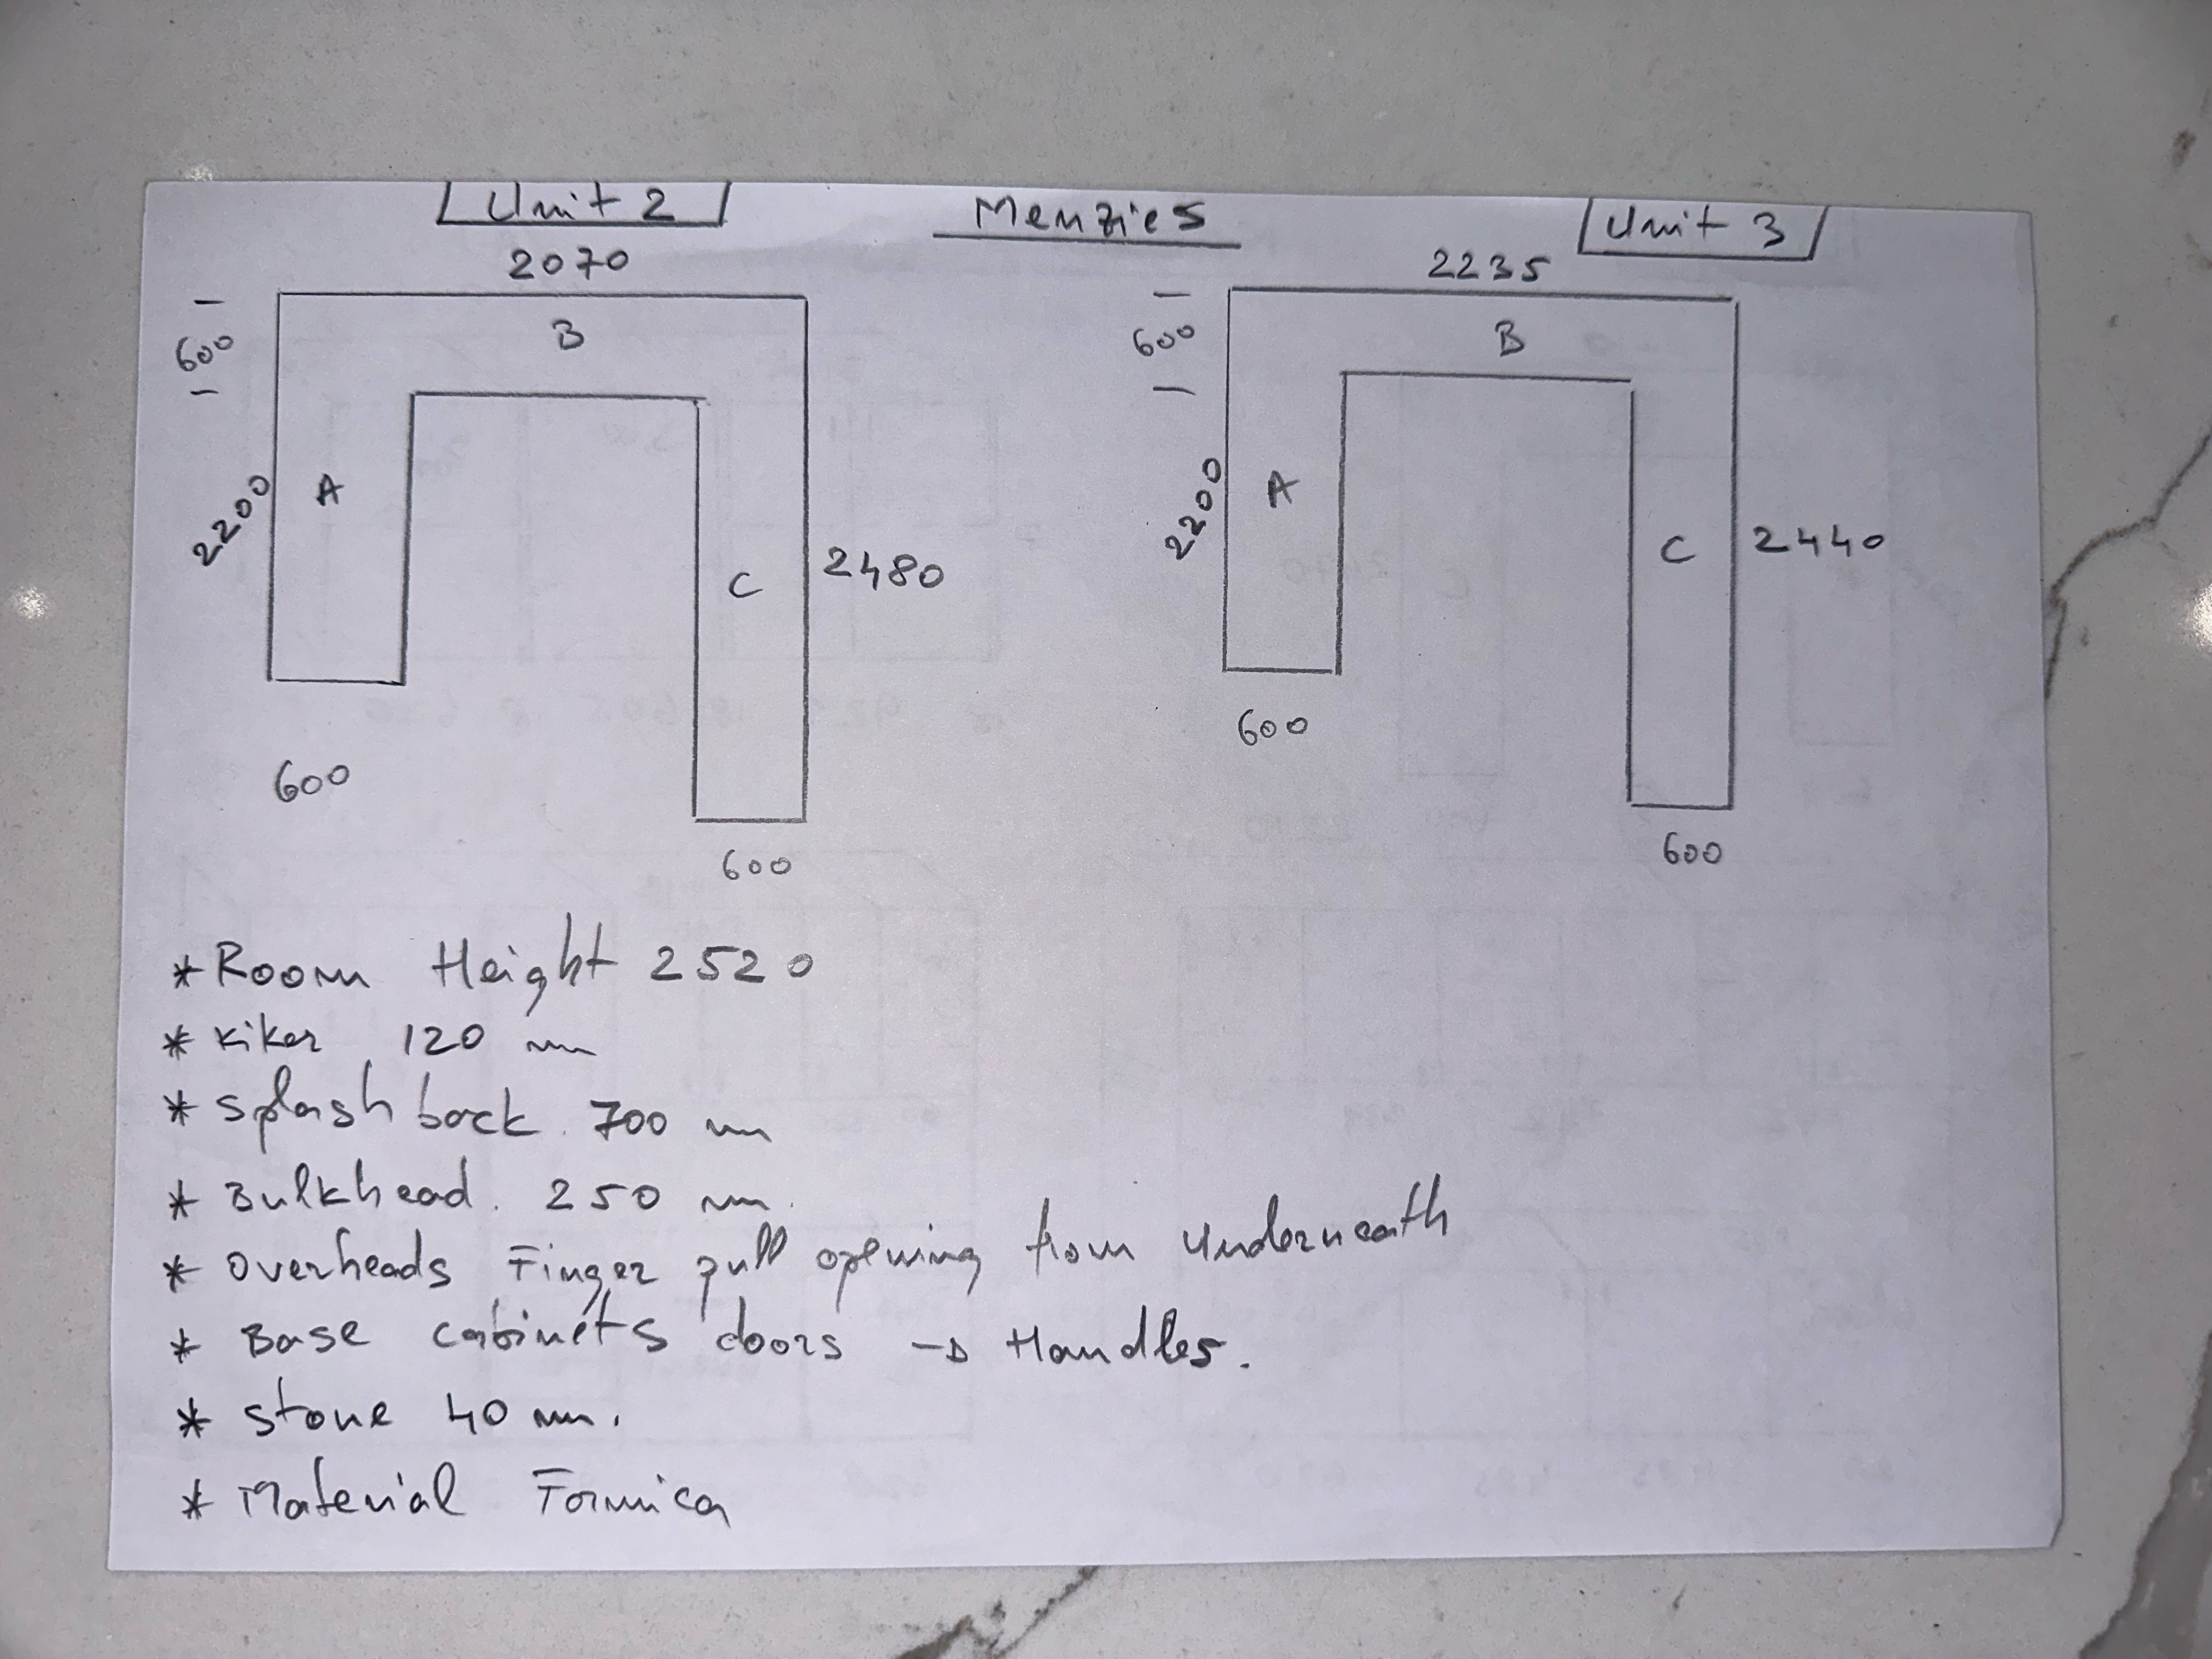 Unit 2
Menzies
Unit 3
2070
2235
600
B
600
B
2200
A
C
2480
2200
A
C
2440
600
600
600
600
* Room Height 2520
* Kiker 120 mm
* Splash back. 700 mm
* Bulkhead. 250 mm.
* Overheads Finger pull opening from Underneath
* Base cabinets doors → Handles.
* Stone 40 mm.
* Material Formica